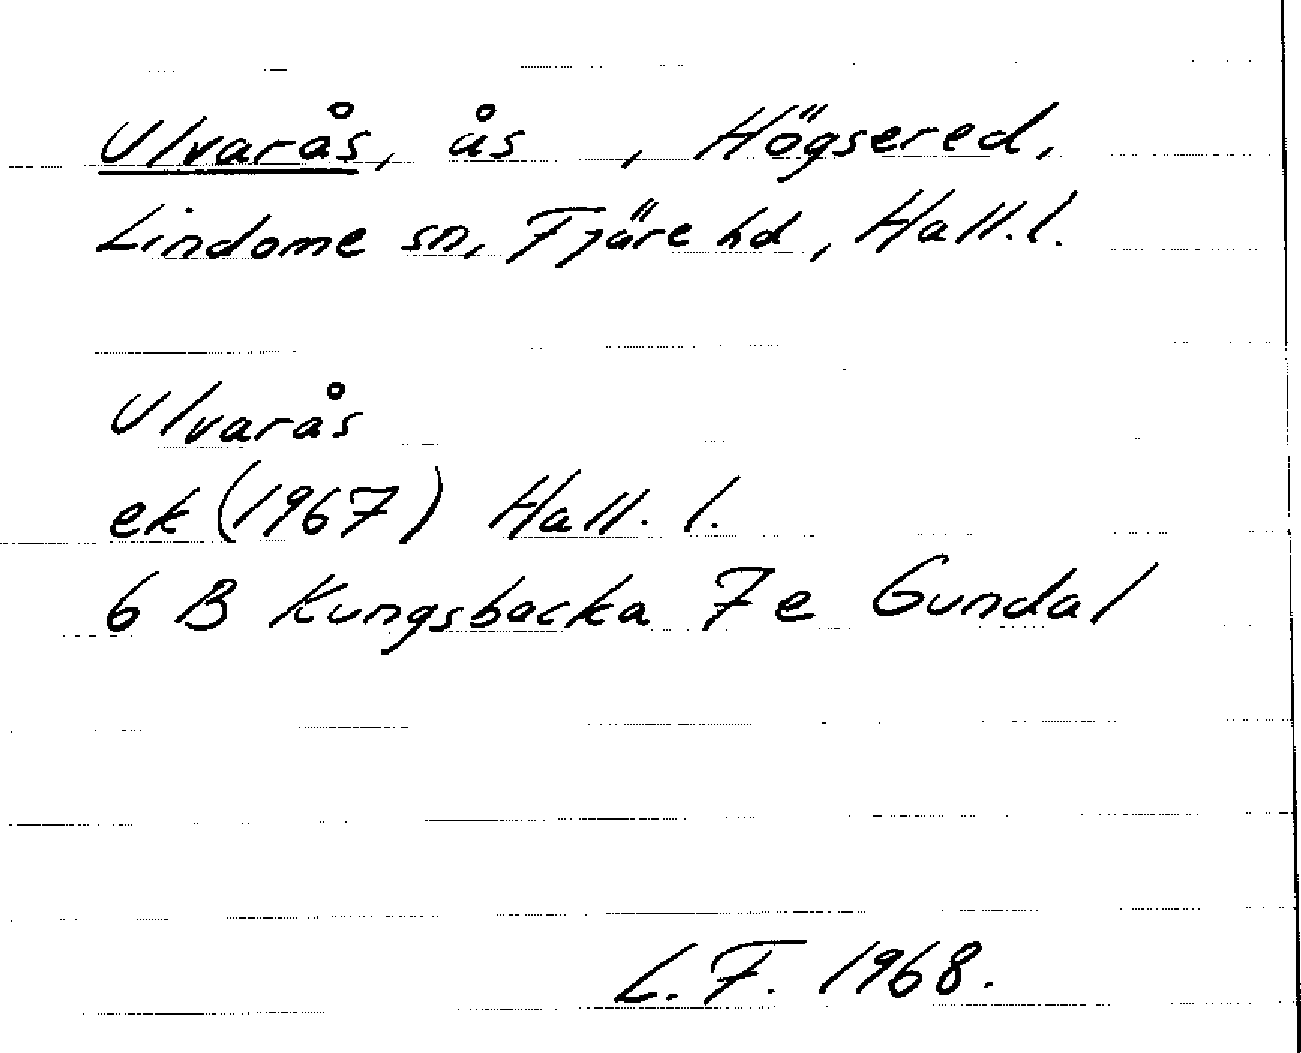 Ulvarås, ås , Högsered,
Lindome sn, Fjäre hd, Hall.l.
Ulvarås
ek (1967) Hall. l.
6 B Kungsbacka 7e Gundal
L.F. 1968.